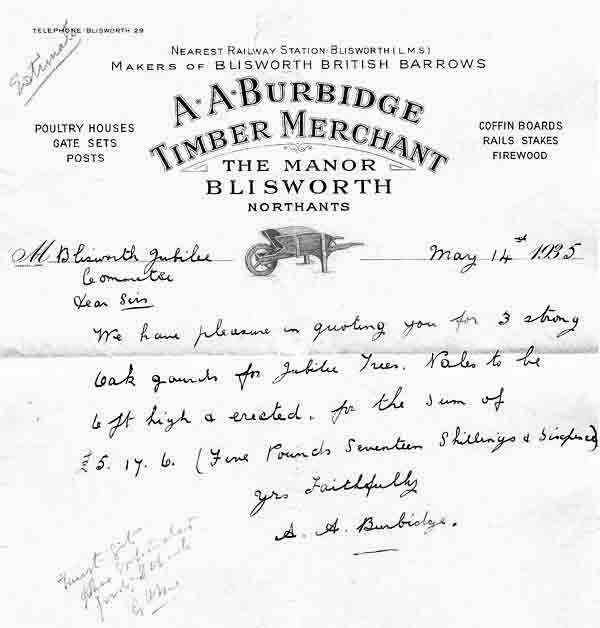 TELEPHONE: BLISWORTH 29
Estimate
NEAREST RAILWAY STATION: BLISWORTH (L.M.S.)
MAKERS OF BLISWORTH BRITISH BARROWS
A. A. BURBIDGE
TIMBER MERCHANT
POULTRY HOUSES
GATE SETS
POSTS
COFFIN BOARDS
RAILS STAKES
FIREWOOD
THE MANOR
BLISWORTH
NORTHANTS
M Blisworth Jubilee
Committee
May 14th 1935
Dear Sirs
We have pleasure in quoting you for 3 strong
Oak gaurds for Jubilee Trees. Pales to be
6 ft high & erected. for the sum of
£5. 17. 6. (Five Pounds Seventeen Shillings & Sixpence)
Yrs Faithfully
A. A. Burbidge.
must get